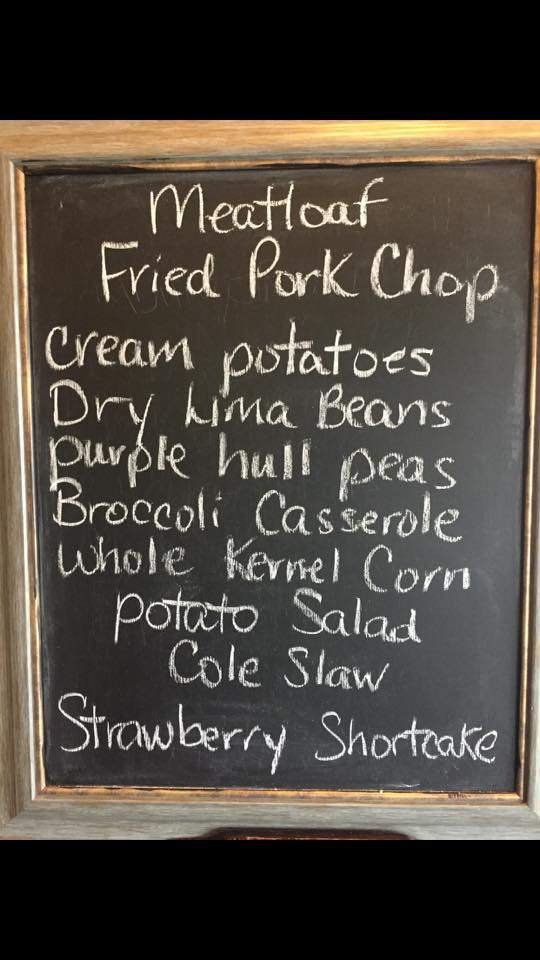 Meatloaf
Fried Pork Chop
Cream potatoes
Dry Lima Beans
purple hull peas
Broccoli Casserole
Whole Kernel Corn
potato Salad
Cole Slaw
Strawberry Shortcake